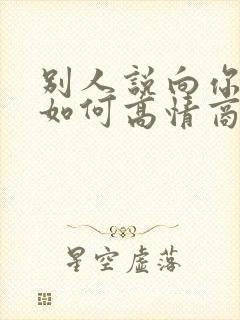 别人説向你
如何高情商
星空虚落